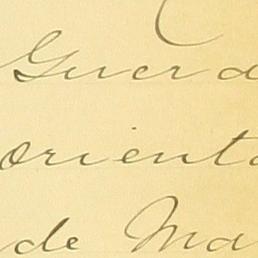 Guerd
orienta
de Ma